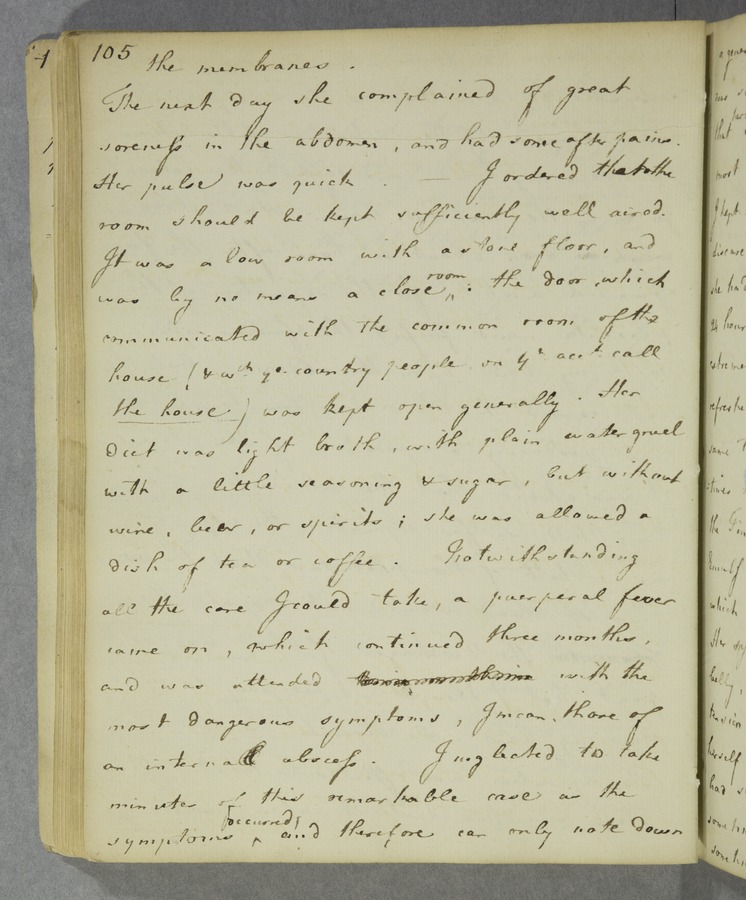 105
the membranes.
The next day she complained of great
soreness in the abdomen, and had some after pains.
Her pulse was quick. — I ordered that the
room should be kept sufficiently well aired.
It was a low room with a stone floor, and
was by no means a close room; the door, which
communicated with the common room of the
house (& wch ye country people on yt acct call
the house) was kept open generally. Her
diet was light broth, with plain water gruel
with a little seasoning & sugar, but without
wine, beer, or spirits; she was allowed a
dish of tea or coffee. Notwithstanding
all the care I could take, a puerperal fever
came on, which continued three months,
and was attended with the
most dangerous symptoms, I mean those of
an internal abscess. I neglected to take
minutes of this remarkable case as the
symptoms occurred, and therefore can only note down